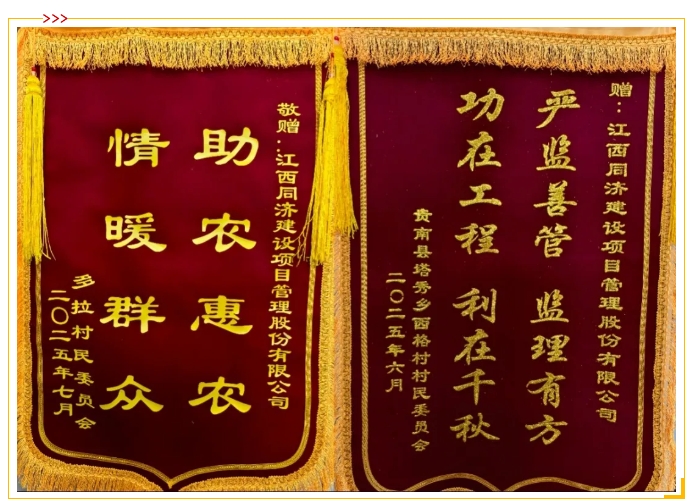 敬赠：江西同济建设项目管理股份有限公司
助农惠农
情暖群众
多拉村民委员会
二〇二五年七月
赠：江西同济建设项目管理股份有限公司
严监善管 监理有方
功在工程 利在千秋
贵南县塔秀乡西格村村民委员会
二〇二五年六月